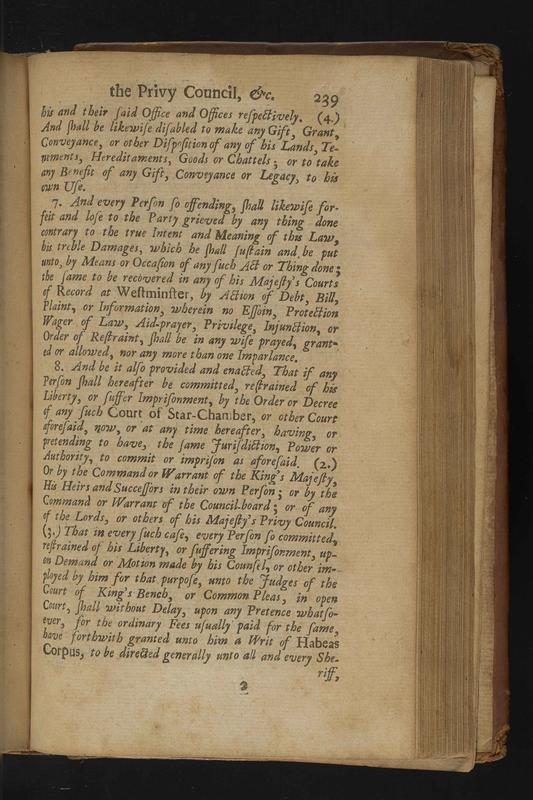 the Privy Council, &c. 239
his and their ſaid Office and Offices reſpectively. (4.)
And ſhall be likewiſe diſabled to make any Gift, Grant,
Conveyance, or other Diſpoſition of any of his Lands, Te-
nements, Hereditaments, Goods or Chattels; or to take
any Benefit of any Gift, Conveyance or Legacy, to his
own Uſe.
7. And every Perſon ſo offending, ſhall likewiſe for-
feit and loſe to the Party grieved by any thing done
contrary to the true Intent and Meaning of this Law,
his treble Damages, which he ſhall ſuſtain and be put
unto, by Means or Occaſion of any ſuch Act or Thing done;
the ſame to be recovered in any of his Majeſty's Courts
of Record at Weſtminſter, by Action of Debt, Bill,
Plaint, or Information, wherein no Eſſoin, Protection
Wager of Law, Aid-prayer, Privilege, Injunction, or
Order of Reſtraint, ſhall be in any wiſe prayed, grant-
ed or allowed, nor any more than one Imparlance.
8. And be it alſo provided and enacted, That if any
Perſon ſhall hereafter be committed, reſtrained of his
Liberty, or ſuffer Impriſonment, by the Order or Decree
of any ſuch Court of Star-Chamber, or other Court
aforeſaid, now, or at any time hereafter, having, or
pretending to have, the ſame Juriſdiction, Power or
Authority, to commit or impriſon as aforeſaid. (2.)
Or by the Command or Warrant of the King's Majeſty,
His Heirs and Succeſſors in their own Perſon; or by the
Command or Warrant of the Council-board; or of any
of the Lords, or others of his Majeſty's Privy Council.
(3.) That in every ſuch caſe, every Perſon ſo committed,
reſtrained of his Liberty, or ſuffering Impriſonment, up-
on Demand or Motion made by his Counſel, or other im-
ployed by him for that purpoſe, unto the Judges of the
Court of King's Bench, or Common Pleas, in open
Court, ſhall without Delay, upon any Pretence whatſo-
ever, for the ordinary Fees uſually paid for the ſame,
have forthwith granted unto him a Writ of Habeas
Corpus, to be directed generally unto all and every She-
riff,
2